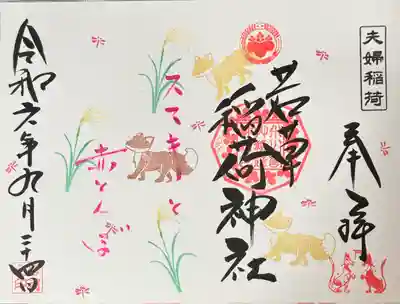 夫婦稲荷
奉拝
若草
稲荷神社
すすきと
赤とんぼ
令和六年九月二十四日